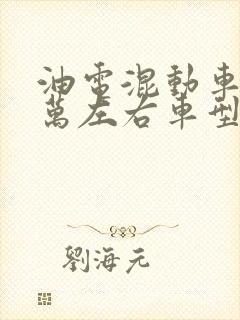 油電混動車
萬左右車型
劉海元